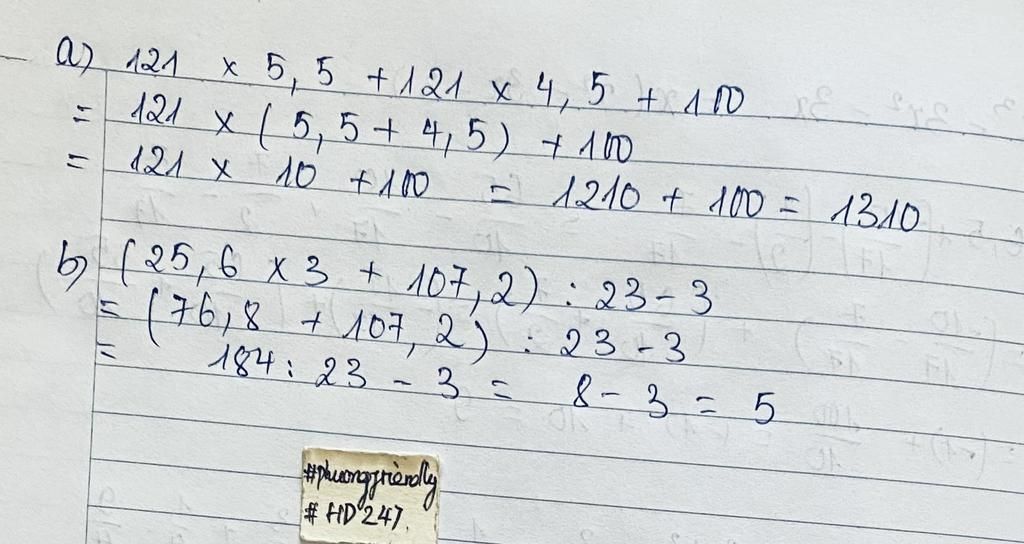 a) 121 × 5,5 + 121 × 4,5 + 100
= 121 × (5,5 + 4,5) + 100
= 121 × 10 + 100 = 1210 + 100 = 1310
b) (25,6 × 3 + 107,2) : 23 - 3
= (76,8 + 107,2) : 23 - 3
= 184 : 23 - 3 = 8 - 3 = 5
#phuongfriendly
# HD247.